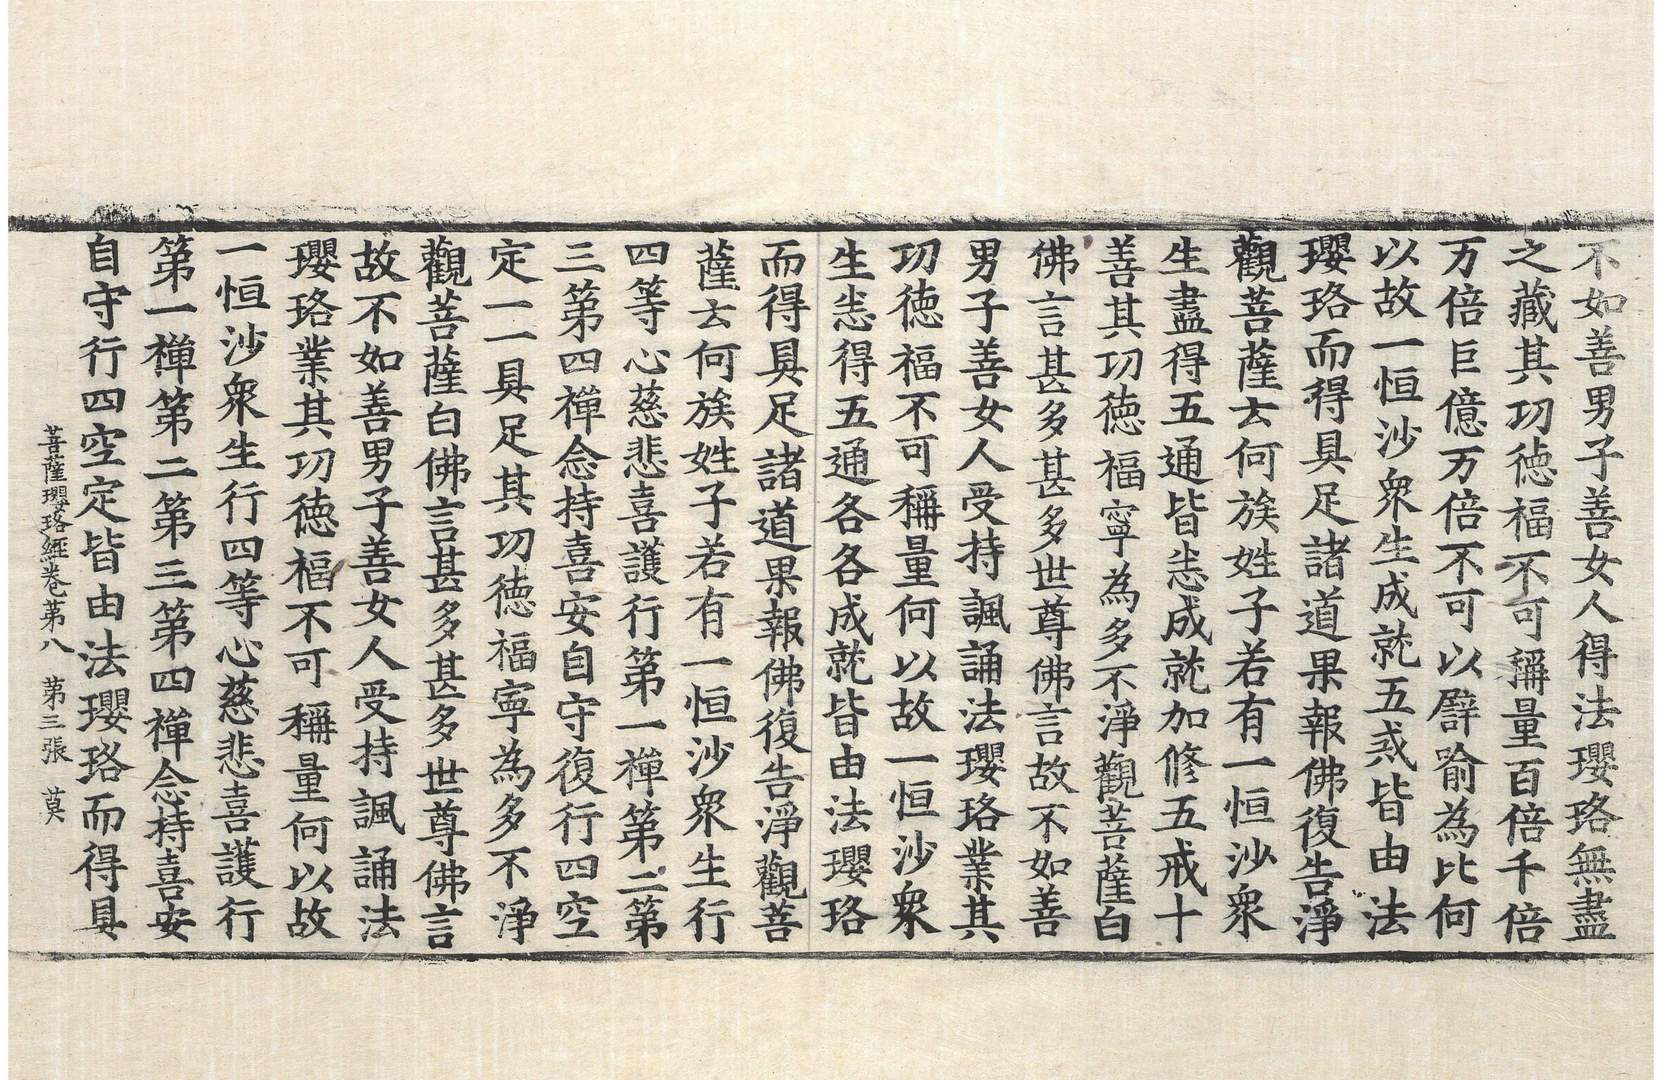 不如善男子善女人得法瓔珞無盡
之藏其功德福不可稱量百倍千倍
万倍巨億万倍不可以譬喻為比何
以故一恒沙衆生成就五戒皆由法
瓔珞而得具足諸道果報佛復告淨
觀菩薩云何族姓子若有一恒沙衆
生盡得五通皆悉成就加修五戒十
善其功德福寧為多不淨觀菩薩白
佛言甚多甚多世尊佛言故不如善
男子善女人受持諷誦法瓔珞業其
功德福不可稱量何以故一恒沙衆
生悉得五通各各成就皆由法瓔珞
而得具足諸道果報佛復告淨觀菩
薩云何族姓子若有一恒沙衆生行
四等心慈悲喜護行第一禪第二第
三第四禪念持喜安自守復行四空
定一一具足其功德福寧為多不淨
觀菩薩白佛言甚多甚多世尊佛言
故不如善男子善女人受持諷誦法
瓔珞業其功德福不可稱量何以故
一恒沙衆生行四等心慈悲喜護行
第一禪第二第三第四禪念持喜安
自守行四空定皆由法瓔珞而得具
菩薩瓔珞經卷第八 第三張 莫